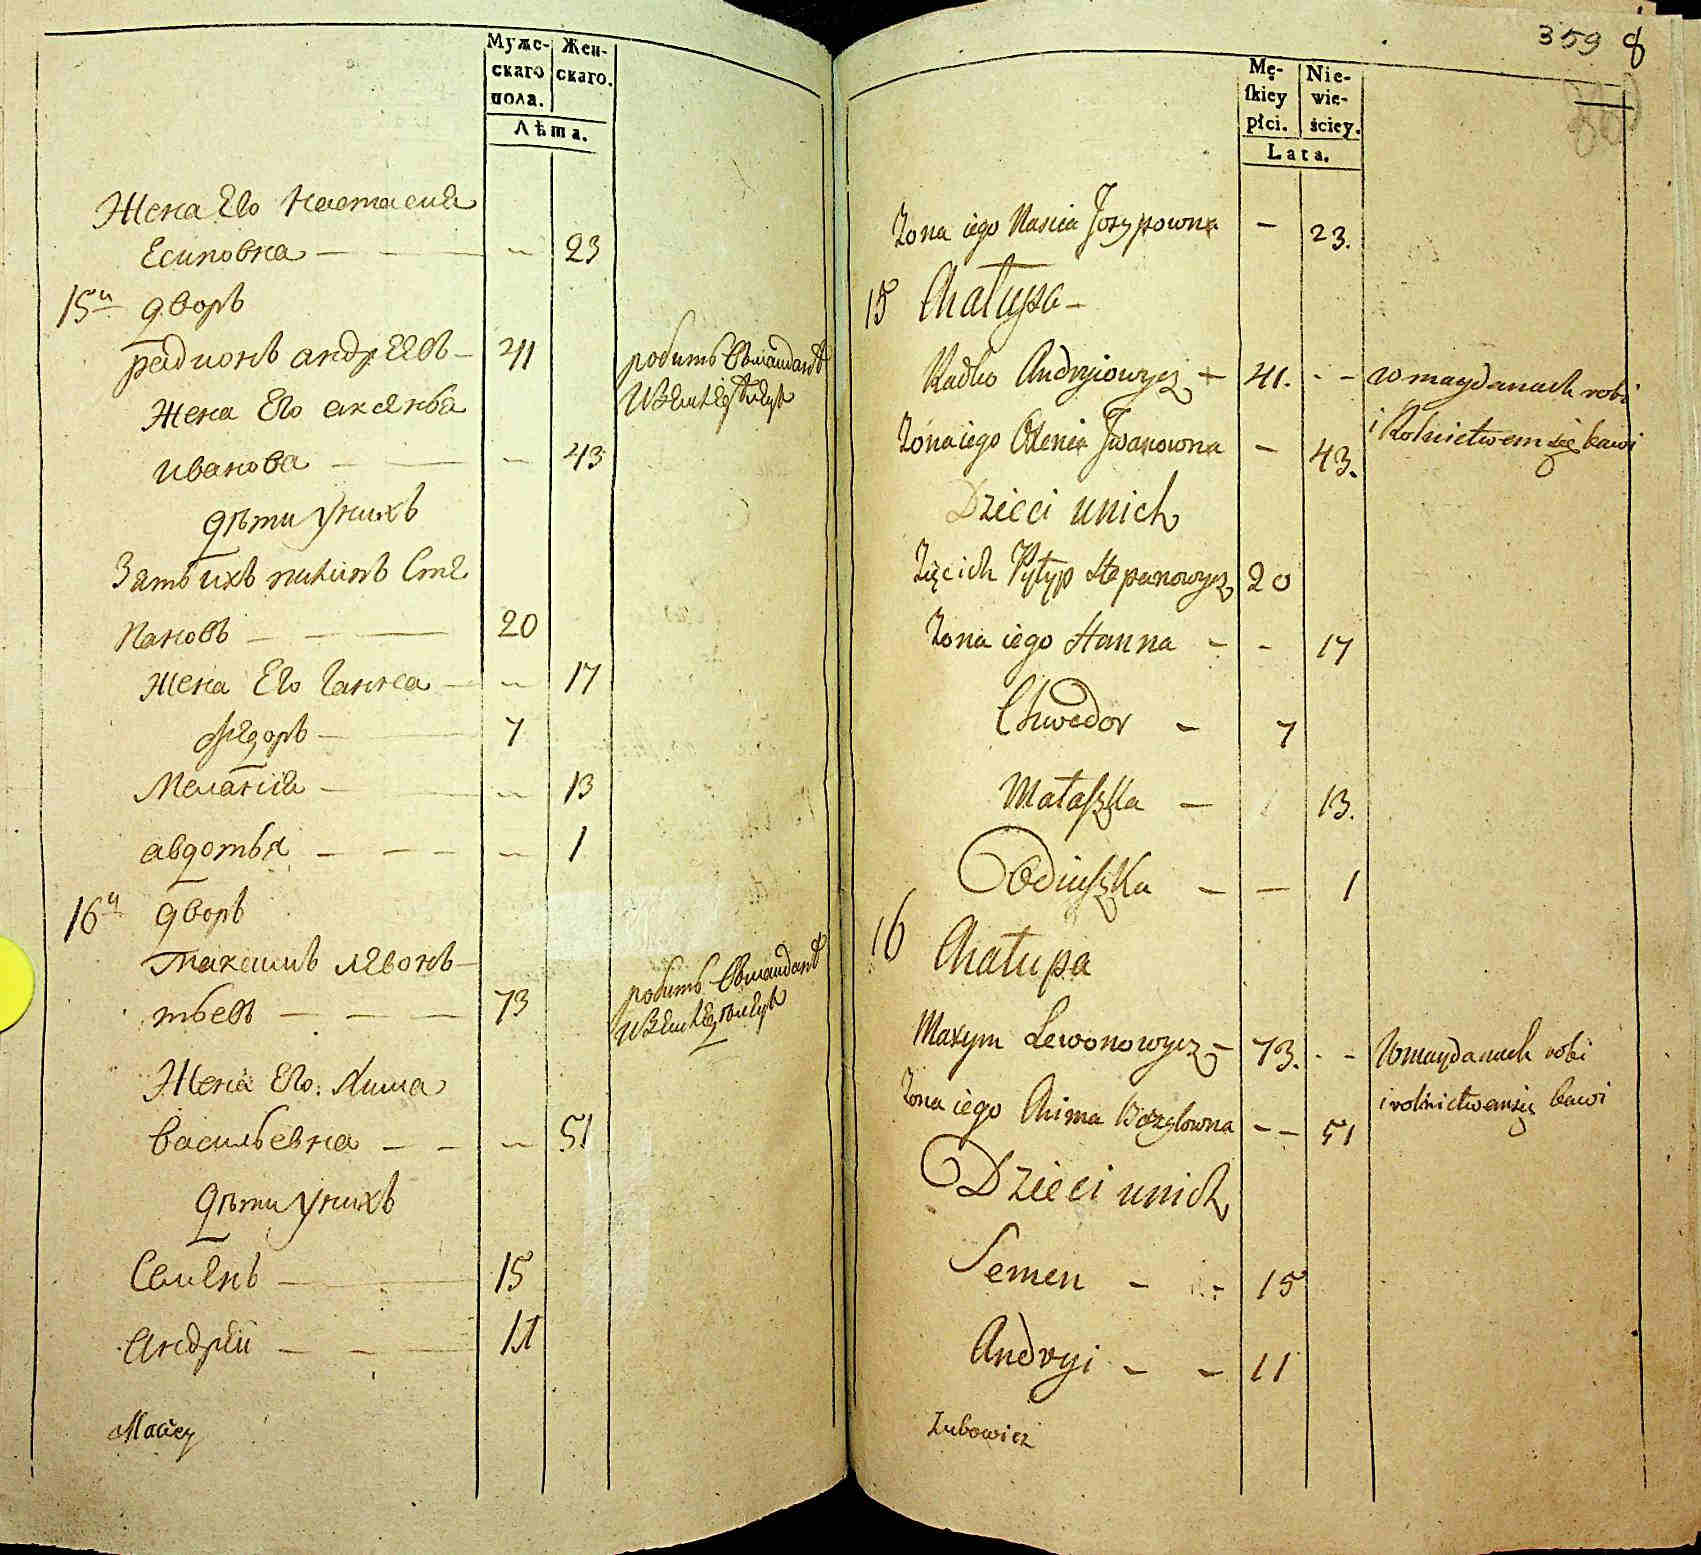 Муже-
скаго
пола.
Жен-
скаго.
Лѣта.
Жена Его Настасия
Есиповна — — — 23
15й дворъ
радионъ андреевъ — 41
робитъ
Жена Его аксенья
иванова — — — 43
дѣти у нихъ
Зять ихъ пилипъ Сте
пановъ — — — 20
Жена Его ганна — — 17
федоръ — — 7
Мелания — — — 13
авдотья — — — — 1
16й дворъ
максимъ левонь-
тьевъ — — — 73
робитъ
Жена Его Хима
васильевна — — — 51
дѣти у нихъ
Семенъ — 15
Андрей — — — 11
Maciey
359 8
Mę-
skiey
płci.
Nie-
wie-
ściey.
Lata.
Zona iego Nasica Josypowna — 23.
15 Chałupa —
Radko Andryiowycz — 41. - — w maydanach robi
i Rolnictwem się bawi
Zona iego Oxenia Jwanowna — 43.
Dzieci unich
Zięc ich Pyłyp Stepanowycz 20
Zona iego Hanna — - 17
Chwedor — 7
Małaszka — 13.
Odiuszka — — 1
16 Chałupa
Maxym Lewonowycz — 73. - — W maydanach robi
i rolnictwem się bawi
Zona iego Chima Wazylowna — — 51
Dzieci unich
Semen — - 15
Andryi — — 11
Zubowicz